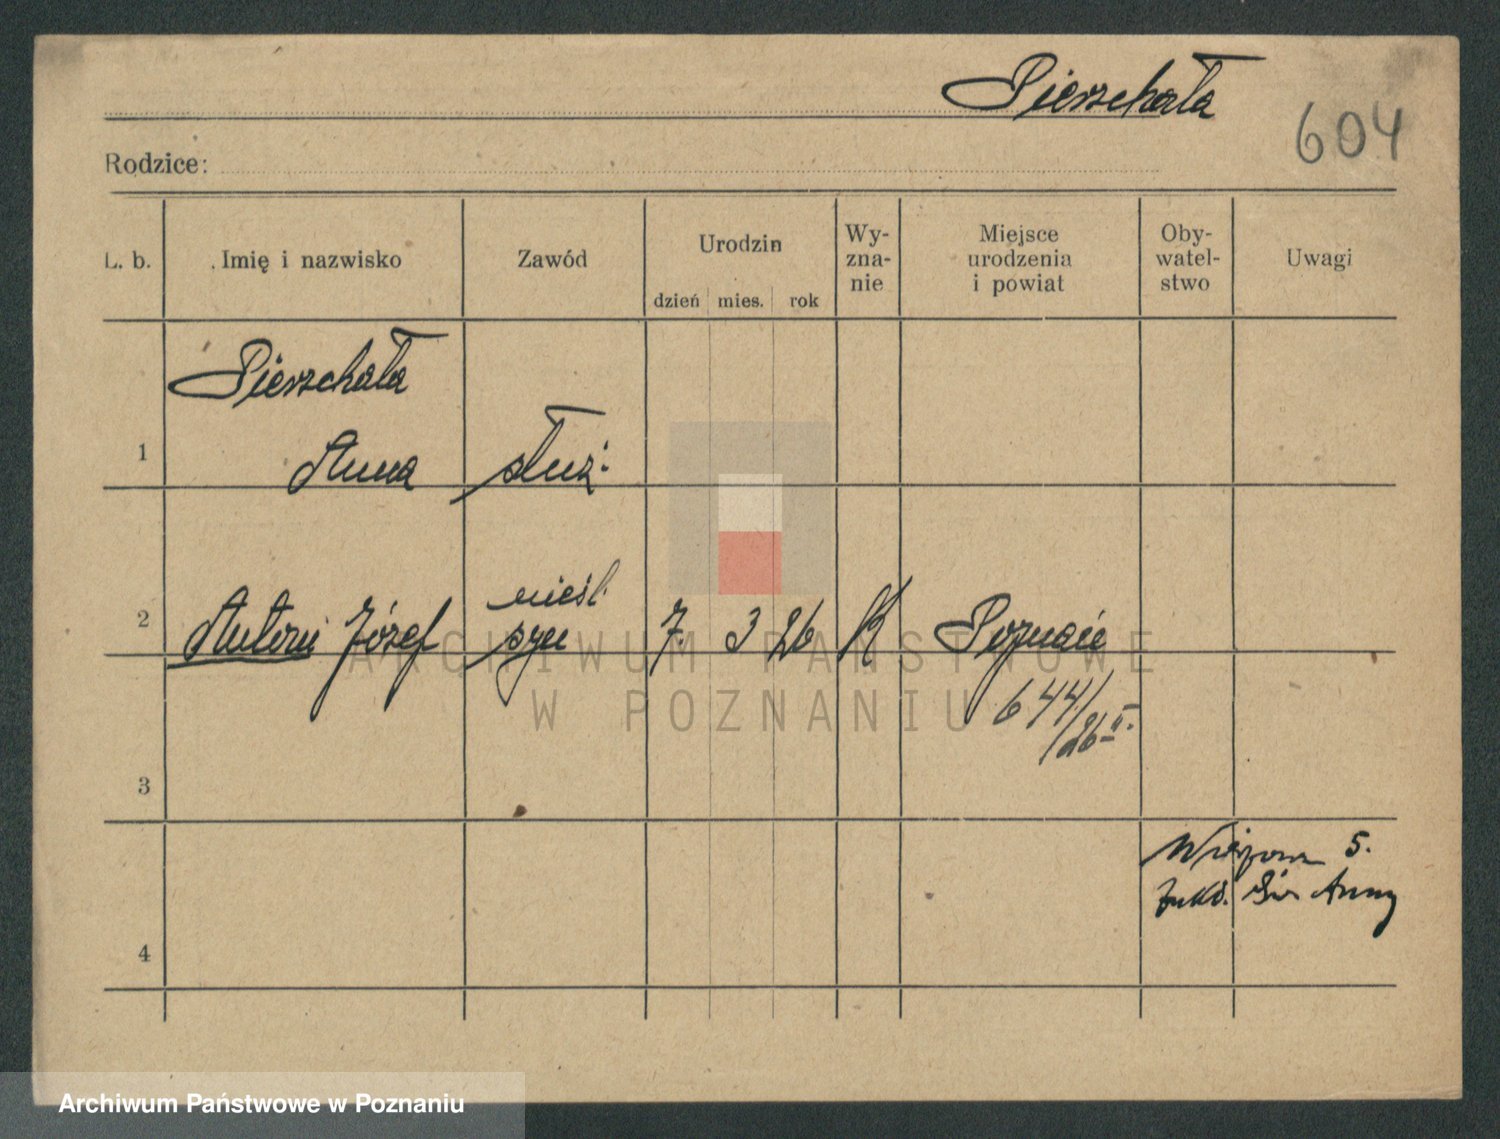 Pierzchała
604
Rodzice:
L. b.
Imię i nazwisko
Zawód
Urodzin
dzień mies. rok
Wy-
zna-
nie
Miejsce
urodzenia
i powiat
Oby-
watel-
stwo
Uwagi
Pierzchała
1 Anna służ.
nieśl.
2 Antoni Józef syn 7. 3 26 K Poznań
644/26 II.
3
5.
Anny
4
ARCHIWUM PAŃSTWOWE
W POZNANIU
Archiwum Państwowe w Poznaniu